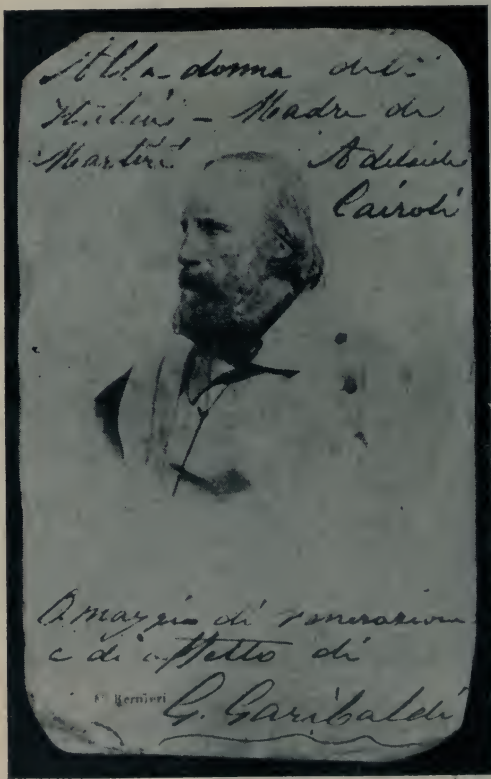 Alla donna
Madre di
Martiri, Adelaide
Cairoli
Omaggio di venerazione
e di affetto di
Bernieri
G. Garibaldi